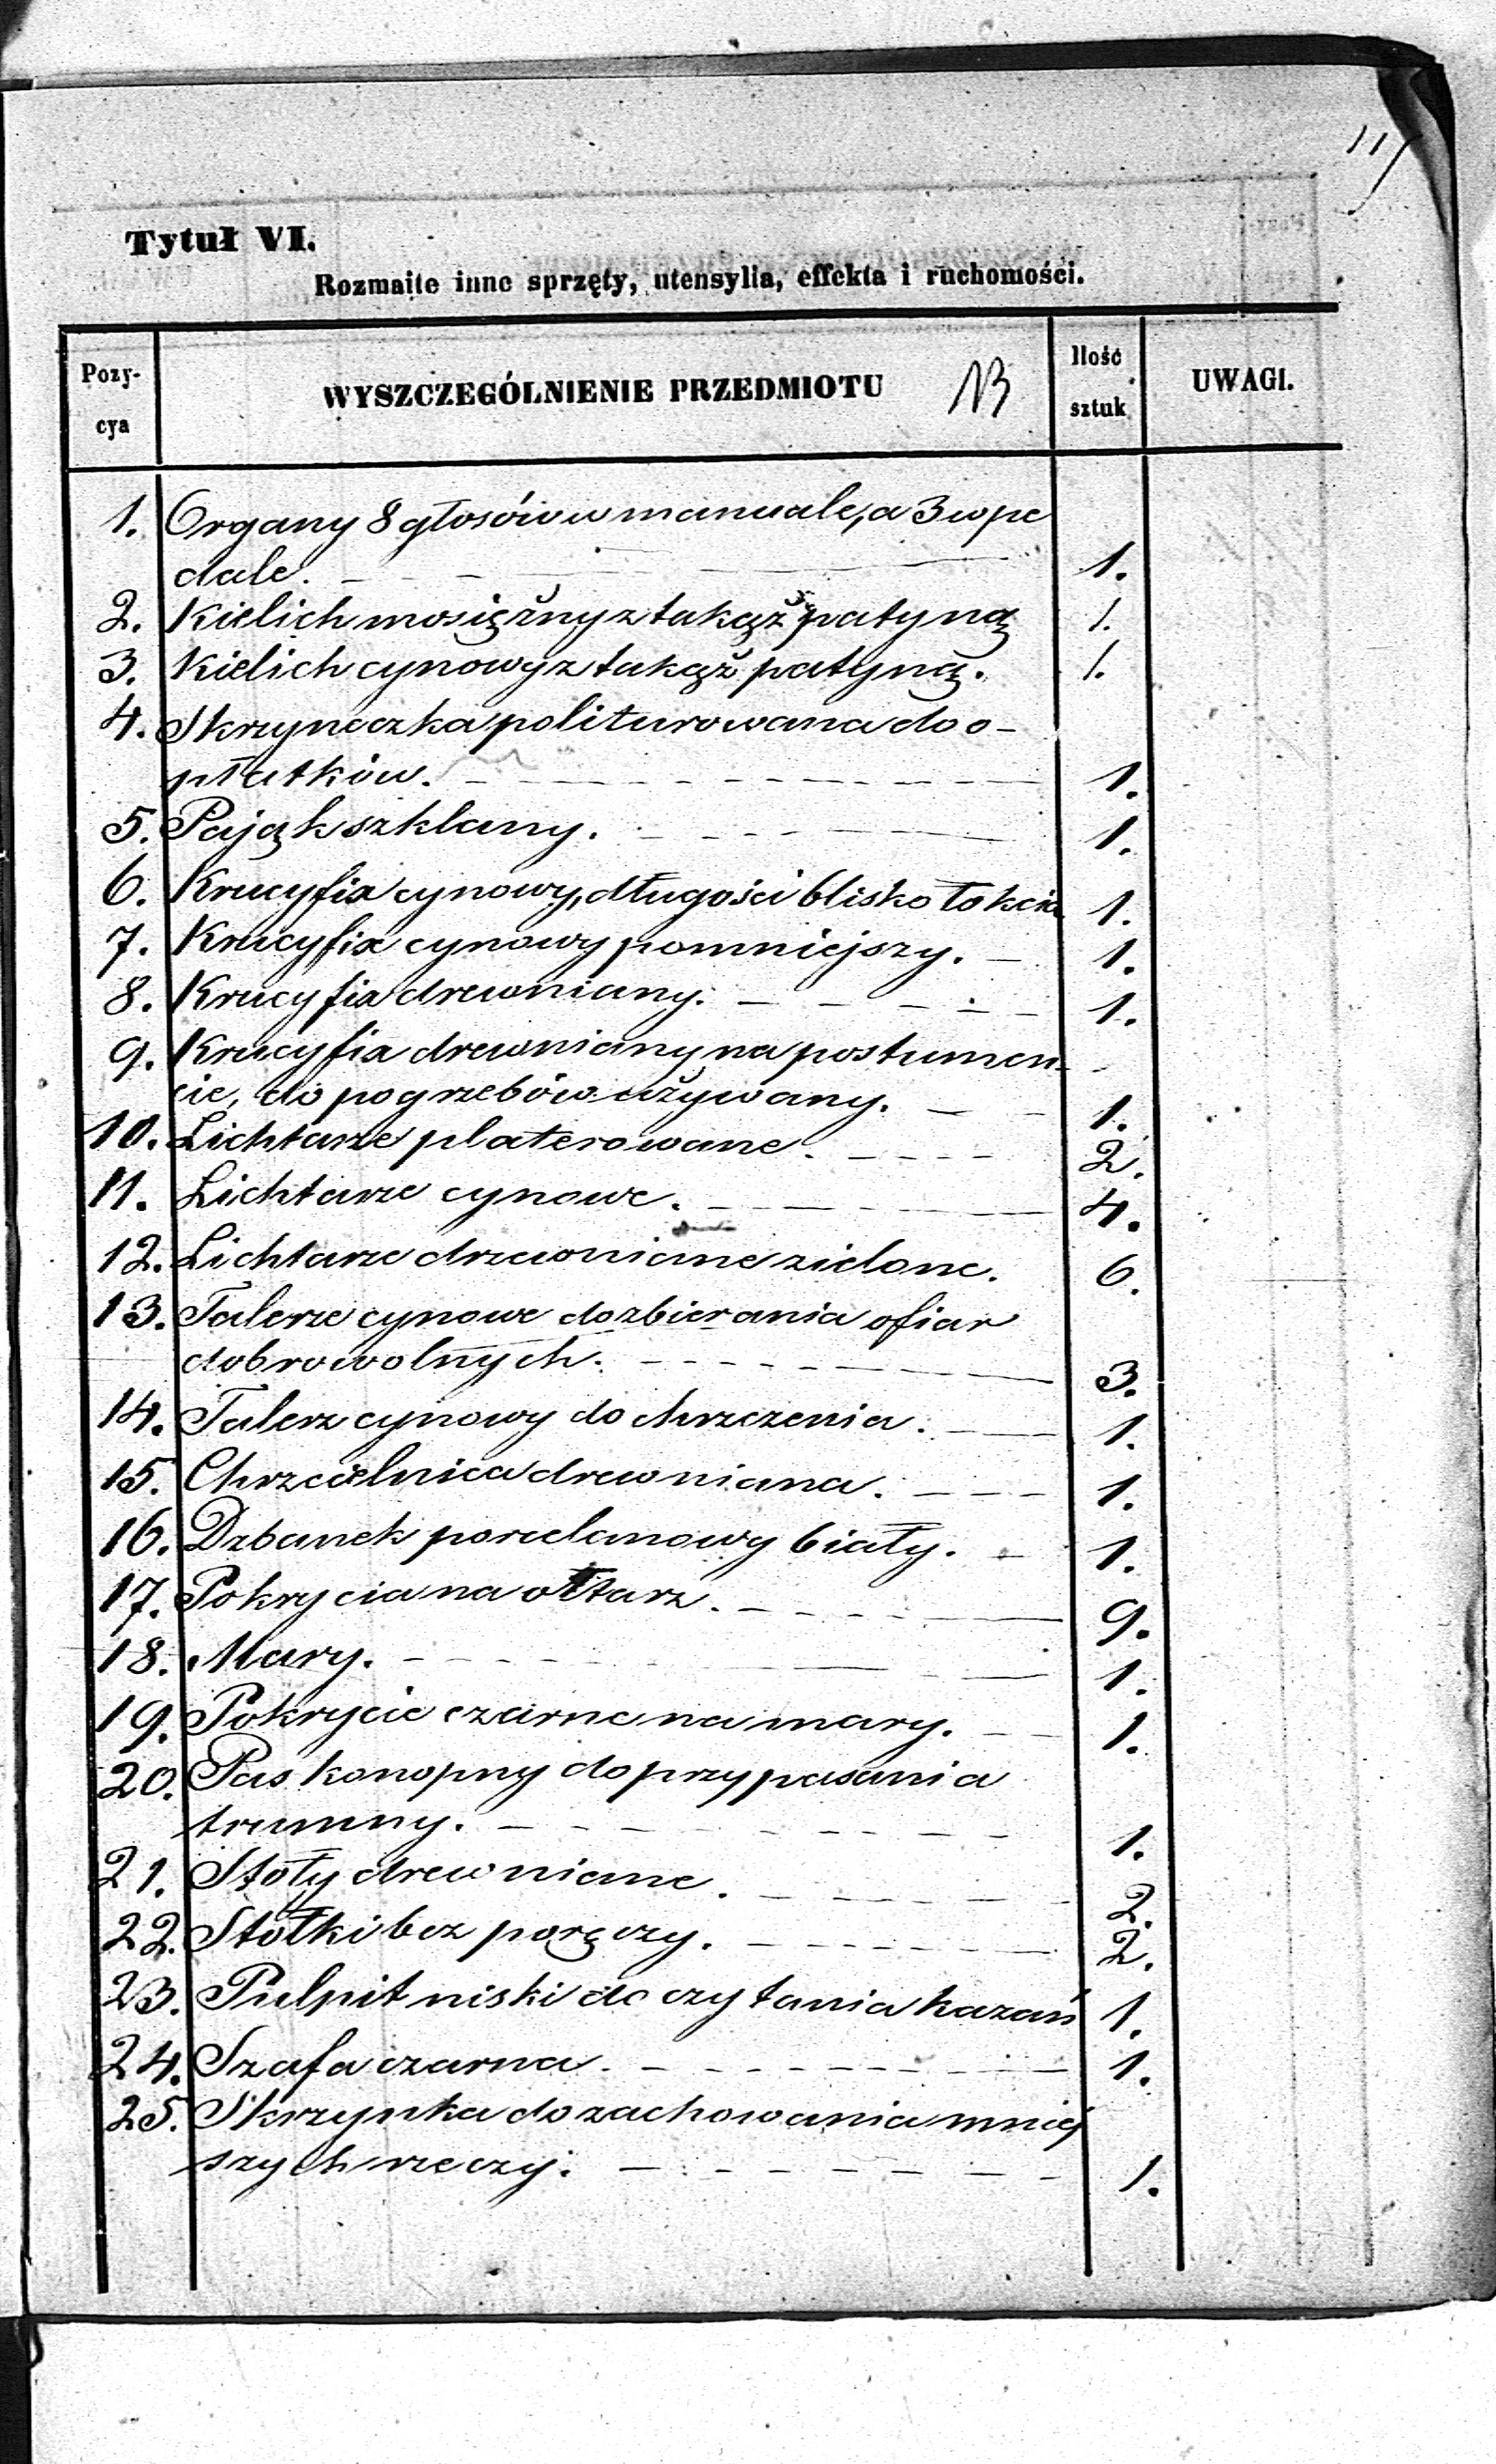 117
Tytuł VI.
Rozmaite inne sprzęty, utensylia, effekta i ruchomości.
Pozy-
cya
WYSZCZEGÓLNIENIE PRZEDMIOTU
Ilość
sztuk
UWAGI.
1. Organy 8 głosów w manuale, a 3 w pe
dale. 1.
2. Kielich mosiężny z takąż patyną 1.
3. Kielich cynowy z takąż patyną. 1.
4. Skrzyneczka politurowana do o-
płatków. 1.
5. Pająk szklany. 1.
6. Krucyfix cynowy, długości blisko łokcia 1.
7. Krucyfix cynowy pomniejszy. 1.
8. Krucyfix drewniany. 1.
9. Krucyfix drewniany na postumen-
cie, do pogrzebów używany. 1.
10. Lichtarze platerowane. 2.
11. Lichtarze cynowe. 4.
12. Lichtarze drzewniane zielone. 6.
13. Talerze cynowe do zbierania ofiar
dobrowolnych. 3.
14. Talerz cynowy do chrzczenia. 1.
15. Chrzcielnica drewniana. 1.
16. Dzbanek porcelanowy biały. 1.
17. Pokrycia na ołtarz. 9.
18. Mary. 1.
19. Pokrycie czarne na mary. 1.
20. Pas konopny do przypasania
trumny. 1.
21. Stoły drewniane. 2.
22. Stołki bez poręczy. 2.
23. Pulpit niski do czytania kazań 1.
24. Szafa czarna. 1.
25. Skrzynka do zachowania mniej
szych rzeczy. 1.